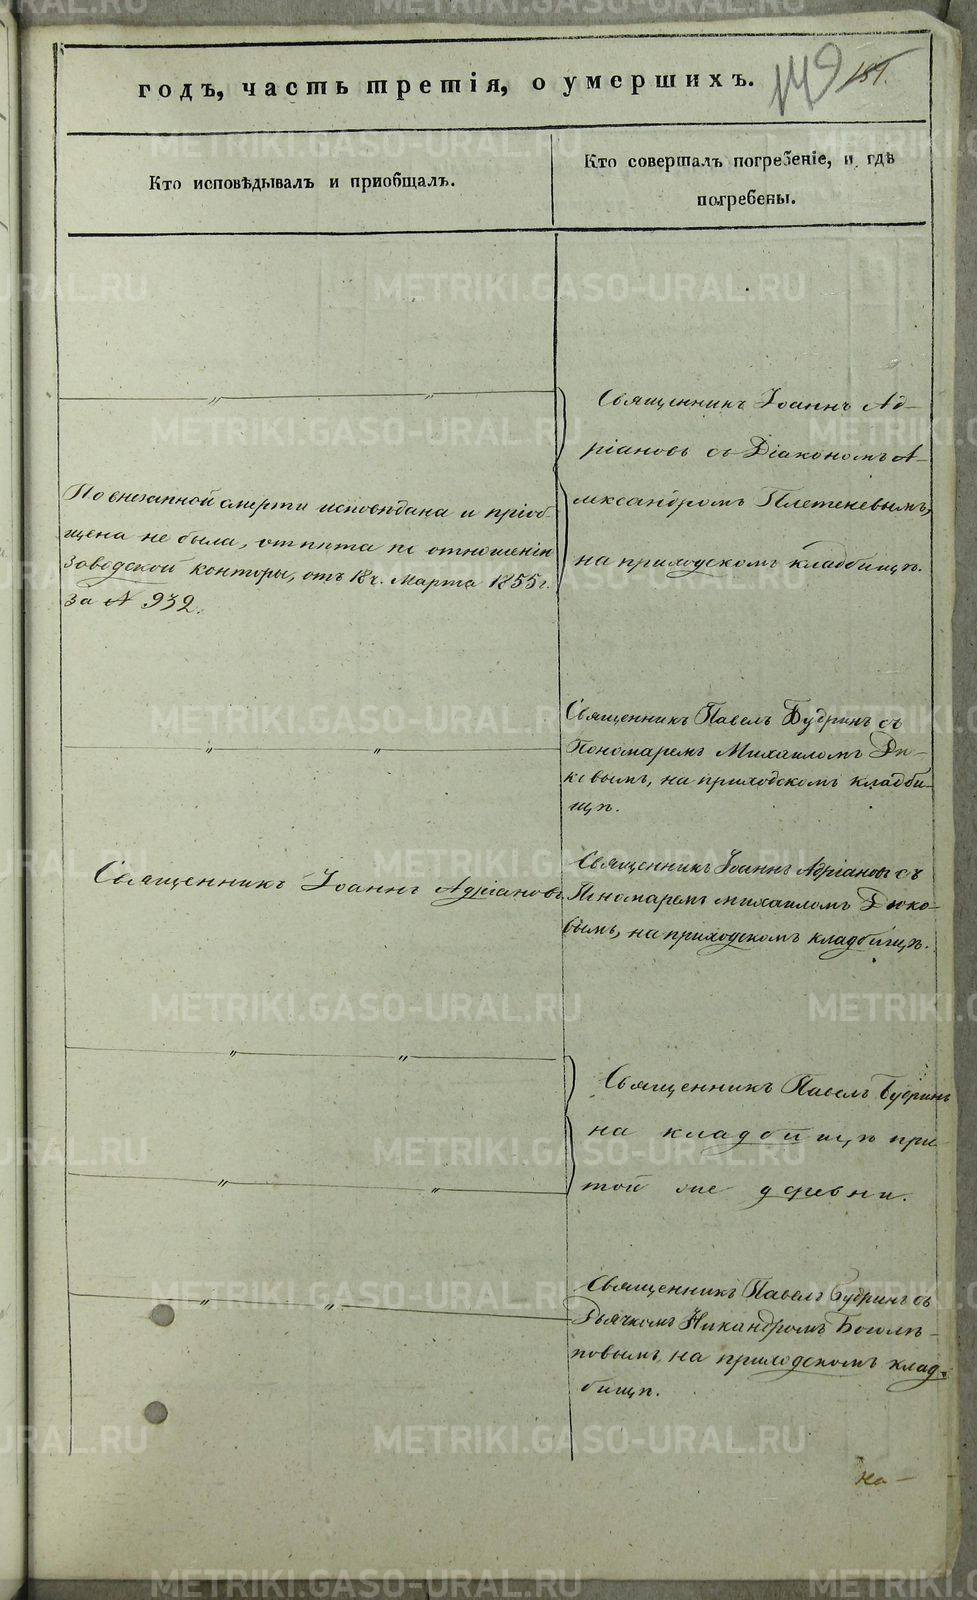 годъ, часть третія, о умершихъ.
149
Кто исповѣдывалъ и пріобщалъ.
Кто совершалъ погребеніе, и гдѣ
погребены.
Священникъ Іоаннъ Ад-
ріановъ съ Діакономъ А-
лександромъ Плетеневымъ,
на приходскомъ кладбищѣ.
По внезапной смерти исповѣдана и пріоб-
щена не была, отпѣта по отношенію
Заводской конторы, отъ 18 ч. Марта 1855 г.
за № 932.
Священникъ Павелъ Будринъ съ
Пономаремъ Михаиломъ Дю-
ковымъ, на приходскомъ кладби-
щѣ.
Священникъ Іоаннъ Адріановъ
Священникъ Іоаннъ Адріановъ съ
Пономаремъ Михаиломъ Дюко-
вымъ, на приходскомъ кладбищѣ.
Священникъ Павелъ Будринъ
на кладбищѣ при
той же деревни.
Священникъ Павелъ Будринъ съ
Дьячкомъ Никандромъ Боголѣ-
повымъ, на приходскомъ клад-
бищѣ.
на-
METRIKI.GASO-URAL.RU